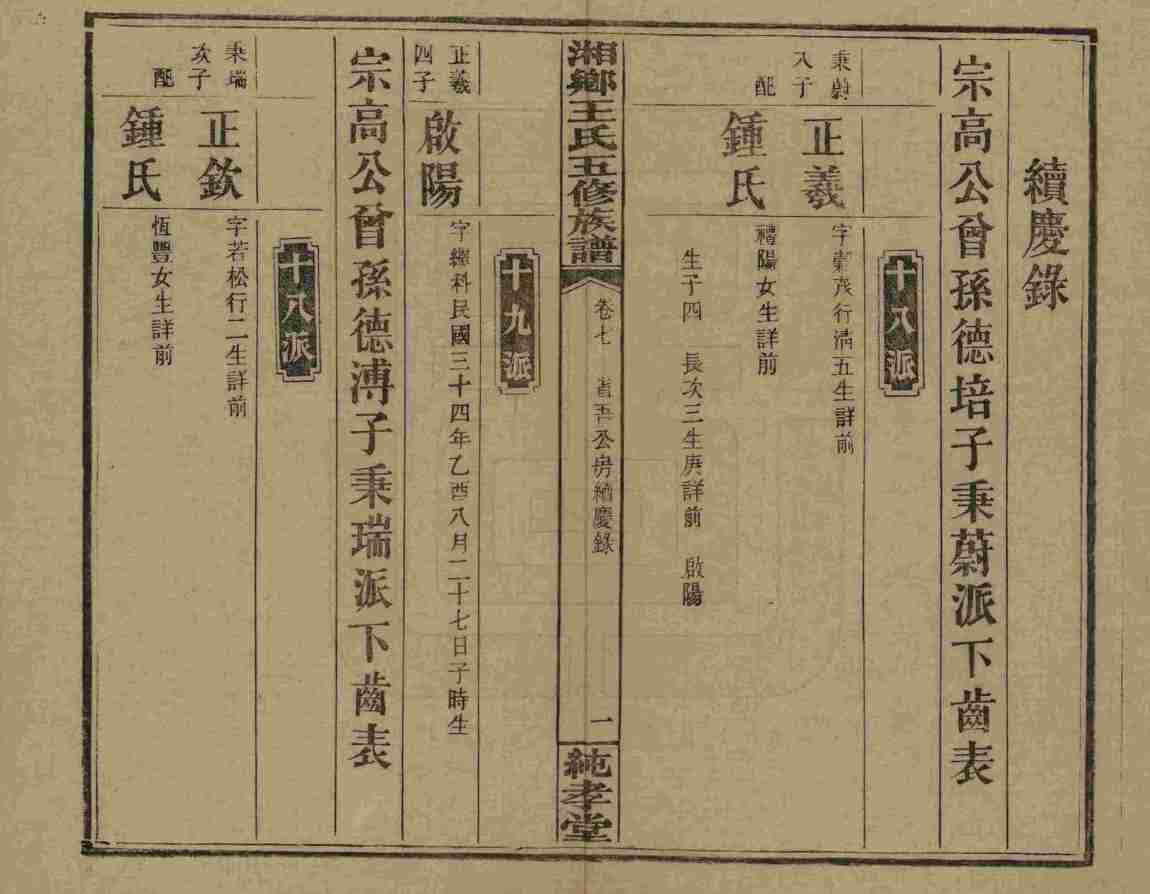 續慶錄
宗高公曾孫德培子秉蔚派下齒表
十八派
秉蔚
入子
正羲
字穀茂行清五生詳前
配
鍾氏
禮陽女生詳前
生子四 長次三生庚詳前 啟陽
湘鄉王氏五修族譜
卷七 省吾公房續慶錄 一
純孝堂
十九派
正羲
四子
啟陽
字繼科民國三十四年乙酉八月二十七日子時生
宗高公曾孫德溥子秉瑞派下齒表
十八派
秉瑞
次子
正欽
字若松行二生詳前
配
鍾氏
恆豐女生詳前